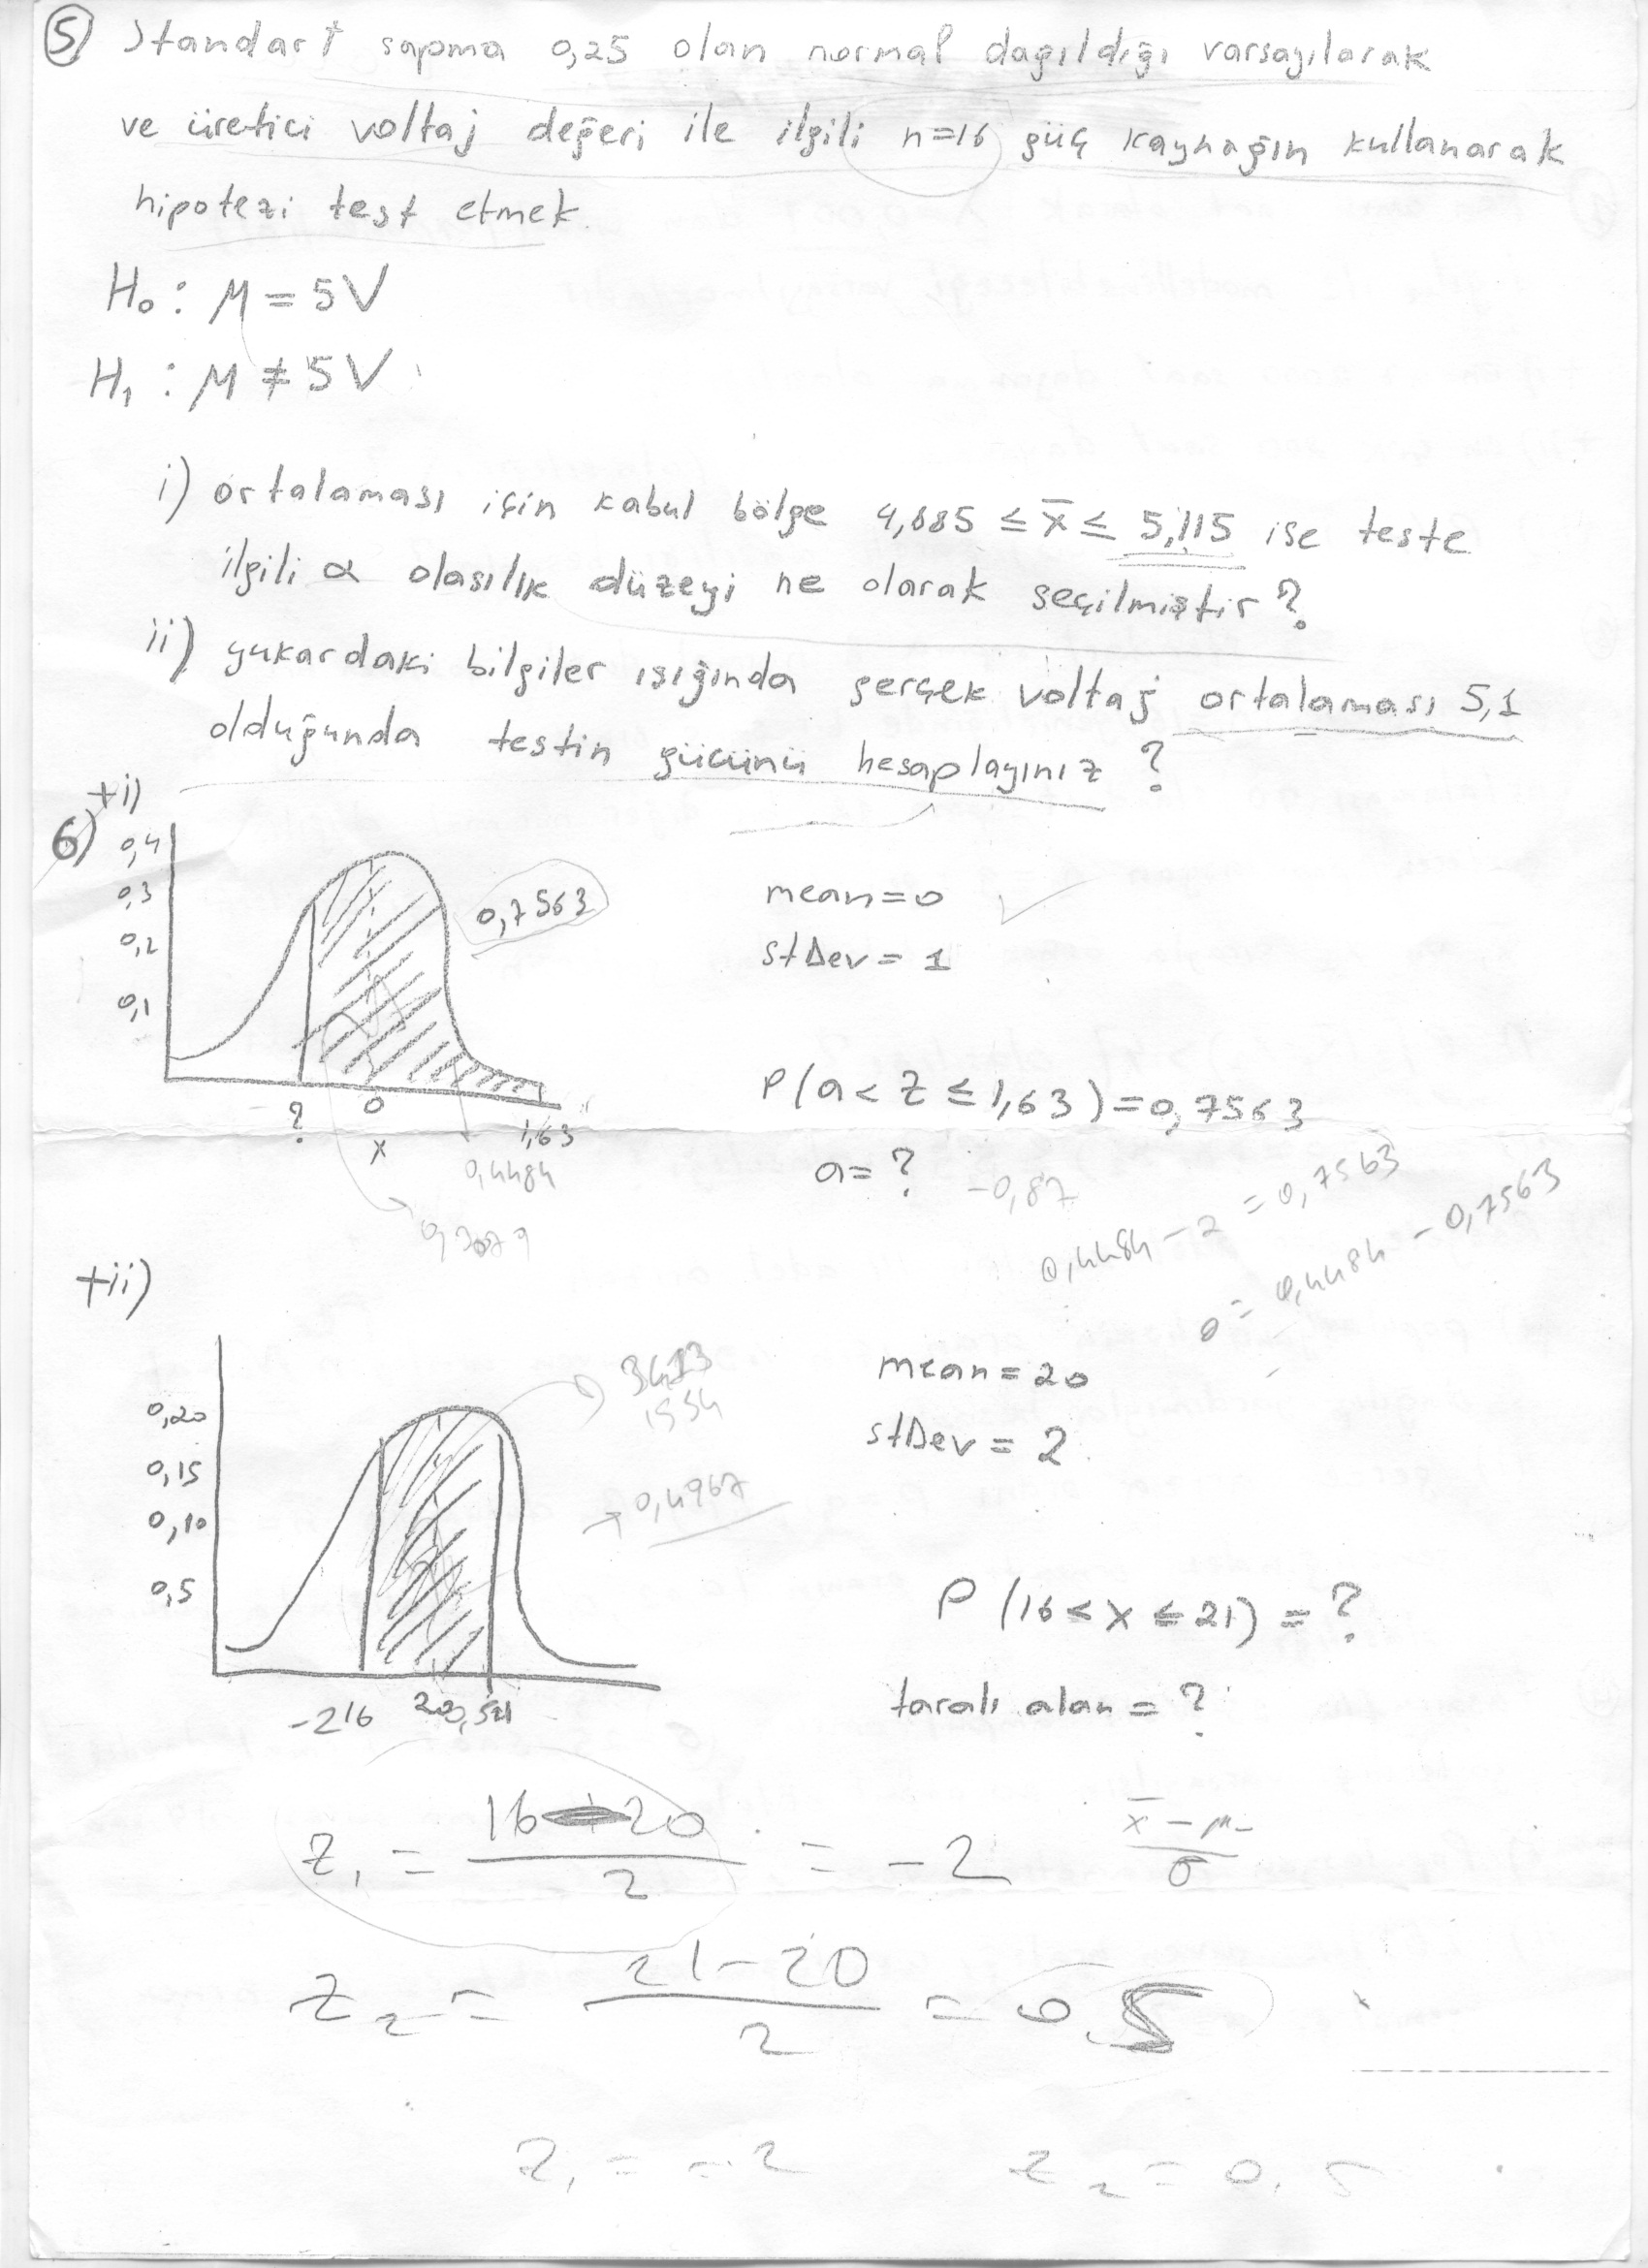 5) Standart sapma 0,25 olan normal dağıldığı varsayılarak
ve üretici voltaj değeri ile ilgili n=16 güç kaynağın kullanarak
hipotezi test etmek.
H₀ : μ = 5V
H₁ : μ ≠ 5V
i) ortalaması için kabul bölge 4,885 ≤ x̄ ≤ 5,115 ise teste
ilgili α olasılık düzeyi ne olarak seçilmiştir?
ii) yukardaki bilgiler ışığında gerçek voltaj ortalaması 5,1
olduğunda testin gücünü hesaplayınız ?
6) +i)
0,4
0,3
0,2
0,1
0,7563
? 0 1,63
x
0,4484
0,3079
mean=0
stDev = 1
P(a < Z ≤ 1,63) = 0,7563
a = ? -0,87
0,4484 - z = 0,7563
0 = 0,4484 - 0,7563
+ii)
0,20
0,15
0,10
0,5
3413
1554
0,4967
-2 16 20 0,5 21
mean = 20
stDev = 2
P (16 < x ≤ 21) = ?
taralı alan = ?
z₁ = 16-20 / 2 = -2
x̄ - μ / σ
z₂ = 21-20 / 2 = 0,5
z₁ = -2 z₂ = 0,5